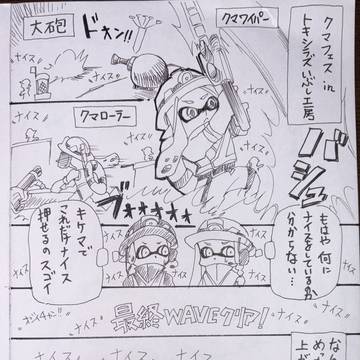 クマフェス in
トキシラズいぶし工房
クマワイパー
大砲
ドオン!!
ナイス
ナイス
ナイス
ナイス!!
ナイス
バシュ
もはや 何に
ナイスをしているのか
分からない…
クマローラー
ブオオオオオ
ナイス
ナイス
キケンで
これだけナイス
押せるのスゴイ
ナイス
ナイス
ナイス
ナイス
ナイス
最終WAVEクリア!
ナイス
ナイス
ナイス
なん
めっ
上が